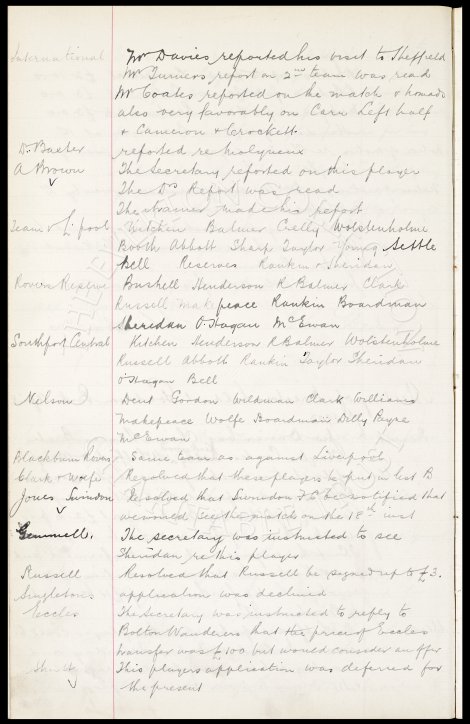 International Mr Davies reported his visit to Sheffield
Mr Turners report on 2nd team was read
Mr Coates reported on the match &
also very favorably on Carr Left half
& Cameron & Crockett
Dr Baxter reported re Molyneux
A Brown The Secretary reported on this player
The Drs Report was read
The Trainer made his report
Team v L'pool Kitchen Balmer Crelly Wolstenholme
Booth Abbott Sharp Taylor Young Settle
Bell Reserves Rankin & Sheridan
Rovers Reserve Bushell Henderson R Balmer Clark
Russell Makepeace Rankin Boardman
Sheridan O'Hagan McEwan
Southport Central Kitchen Henderson R Balmer Wolstenholme
Russell Abbott Rankin Taylor Sheridan
O'Hagan Bell
Nelson Dent Gordon Wildman Clark Williams
Makepeace Wolfe Boardman Dilly
McEwan
Blackburn Rovers Same team as against Liverpool
Clark & Wolfe Resolved that these players be put on list B
Jones Swindon Resolved that Swindon F C be notified that
we would see the match on the 18th inst
Gemmell. The secretary was instructed to see
Sheridan re this player
Russell Resolved that Russell be signed up to £3.
Singletons application was declined
Eccles The Secretary was instructed to reply to
Bolton Wanderers that the price of Eccles
transfer was £100 but would consider an offer
This players application was deferred for
the present